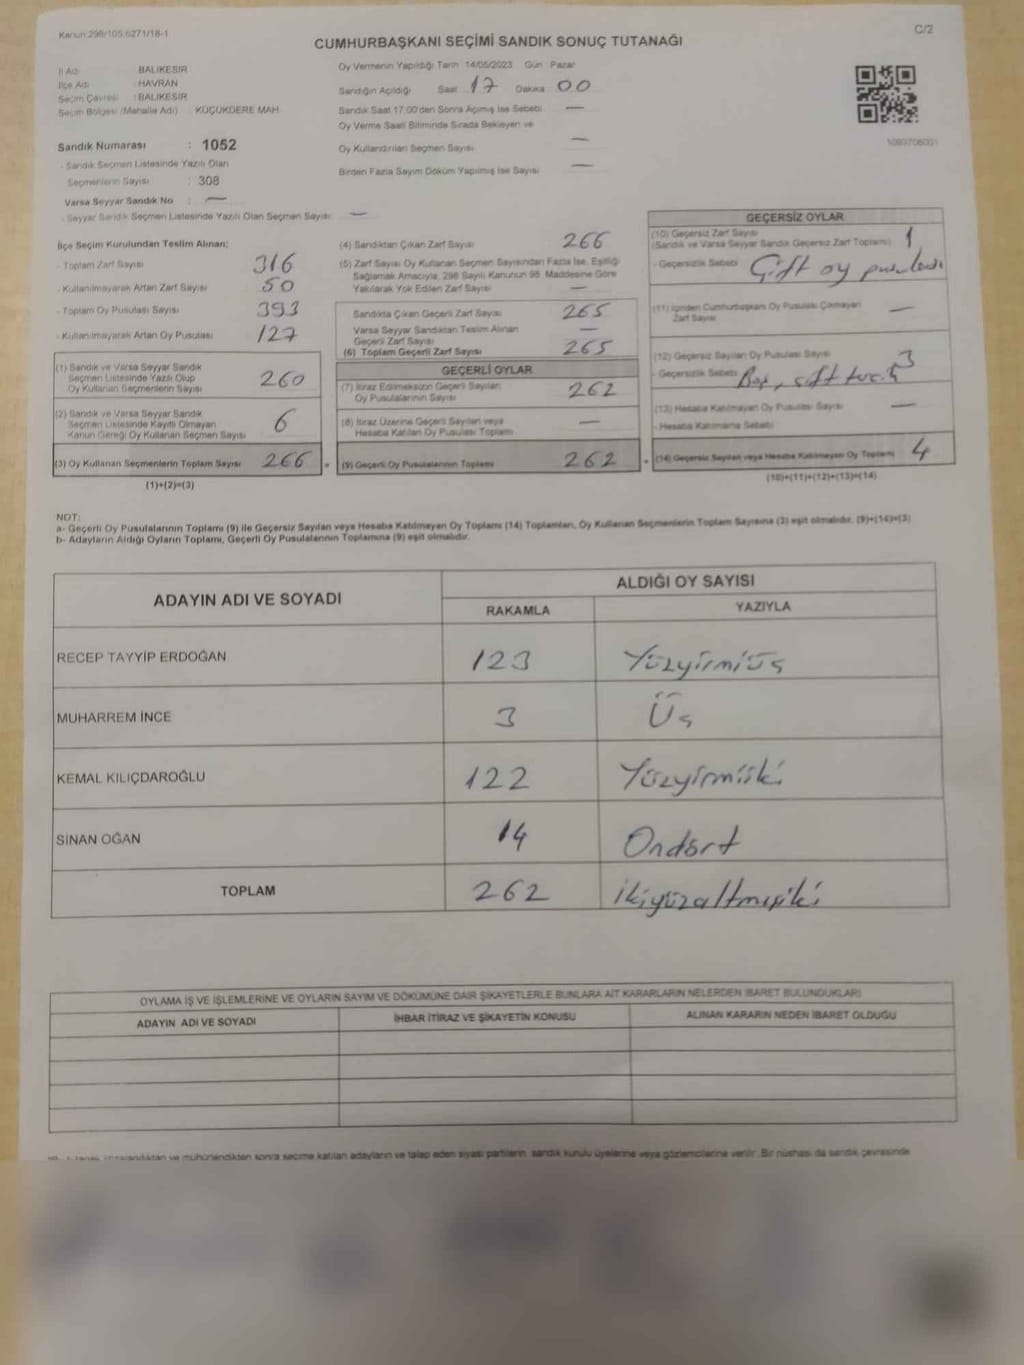 Kanun:298/105;6271/18-1
C/2
CUMHURBAŞKANI SEÇİMİ SANDIK SONUÇ TUTANAĞI
İl Adı : BALIKESİR
İlçe Adı : HAVRAN
Seçim Çevresi : BALIKESİR
Seçim Bölgesi (Mahalle Adı) : KÜÇÜKDERE MAH.
Sandık Numarası : 1052
- Sandık Seçmen Listesinde Yazılı Olan
Seçmenlerin Sayısı : 308
Varsa Seyyar Sandık No : —
- Seyyar Sandık Seçmen Listesinde Yazılı Olan Seçmen Sayısı: —
Oy Vermenin Yapıldığı Tarih 14/05/2023 Gün : Pazar
Sandığın Açıldığı Saat 17 Dakika 00
Sandık Saat 17:00'den Sonra Açılmış İse Sebebi —
Oy Verme Saati Bitiminde Sırada Bekleyen ve
Oy Kullandırılan Seçmen Sayısı —
Birden Fazla Sayım Döküm Yapılmış İse Sayısı —
1080706001
İlçe Seçim Kurulundan Teslim Alınan;
- Toplam Zarf Sayısı 316
- Kullanılmayarak Artan Zarf Sayısı 50
- Toplam Oy Pusulası Sayısı 393
- Kullanılmayarak Artan Oy Pusulası 127
(1) Sandık ve Varsa Seyyar Sandık
Seçmen Listesinde Yazılı Olup
Oy Kullanan Seçmenlerin Sayısı 260
(2) Sandık ve Varsa Seyyar Sandık
Seçmen Listesinde Kayıtlı Olmayan
Kanun Gereği Oy Kullanan Seçmen Sayısı 6
(3) Oy Kullanan Seçmenlerin Toplam Sayısı 266
(1)+(2)=(3)
(4) Sandıktan Çıkan Zarf Sayısı 266
(5) Zarf Sayısı Oy Kullanan Seçmen Sayısından Fazla İse, Eşitliği
Sağlamak Amacıyla, 298 Sayılı Kanunun 98. Maddesine Göre
Yakılarak Yok Edilen Zarf Sayısı —
Sandıkta Çıkan Geçerli Zarf Sayısı 265
Varsa Seyyar Sandıktan Teslim Alınan
Geçerli Zarf Sayısı —
(6) Toplam Geçerli Zarf Sayısı 265
GEÇERLİ OYLAR
(7) İtiraz Edilmeksizin Geçerli Sayılan
Oy Pusulalarının Sayısı 262
(8) İtiraz Üzerine Geçerli Sayılan veya
Hesaba Katılan Oy Pusulası Toplamı —
= (9) Geçerli Oy Pusulalarının Toplamı 262
GEÇERSİZ OYLAR
(10) Geçersiz Zarf Sayısı
(Sandık ve Varsa Seyyar Sandık Geçersiz Zarf Toplamı) 1
- Geçersizlik Sebebi Çift oy pusulası
(11) İçinden Cumhurbaşkanı Oy Pusulası Çıkmayan
Zarf Sayısı —
(12) Geçersiz Sayılan Oy Pusulası Sayısı 3
- Geçersizlik Sebebi Boş, çift tercih
(13) Hesaba Katılmayan Oy Pusulası Sayısı —
- Hesaba Katılmama Sebebi
+ (14) Geçersiz Sayılan veya Hesaba Katılmayan Oy Toplamı 4
(10)+(11)+(12)+(13)=(14)
NOT:
a- Geçerli Oy Pusulalarının Toplamı (9) ile Geçersiz Sayılan veya Hesaba Katılmayan Oy Toplamı (14) Toplamları, Oy Kullanan Seçmenlerin Toplam Sayısına (3) eşit olmalıdır. (9)+(14)=(3)
b- Adayların Aldığı Oyların Toplamı, Geçerli Oy Pusulalarının Toplamına (9) eşit olmalıdır.
ADAYIN ADI VE SOYADI
ALDIĞI OY SAYISI
RAKAMLA YAZIYLA
RECEP TAYYİP ERDOĞAN 123 Yüzyirmiüç
MUHARREM İNCE 3 Üç
KEMAL KILIÇDAROĞLU 122 Yüzyirmiiki
SİNAN OĞAN 14 Ondört
TOPLAM 262 ikiyüzaltmışiki
OYLAMA İŞ VE İŞLEMLERİNE VE OYLARIN SAYIM VE DÖKÜMÜNE DAİR ŞİKAYETLERLE BUNLARA AİT KARARLARIN NELERDEN İBARET BULUNDUKLARI
ADAYIN ADI VE SOYADI İHBAR İTİRAZ VE ŞİKAYETİN KONUSU ALINAN KARARIN NEDEN İBARET OLDUĞU
imzalandıktan ve mühürlendikten sonra seçime katılan adayların ve talep eden siyasi partilerin sandık kurulu üyelerine veya gözlemcilerine verilir. Bir nüshası da sandık çevresinde